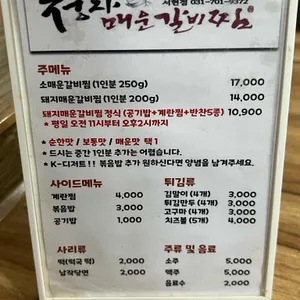 청화
매운갈비찜
서현점 031-701-9372
주메뉴
소매운갈비찜 (1인분 250g) 17,000
돼지매운갈비찜 (1인분 200g) 14,000
돼지매운갈비찜 정식 (공기밥+계란찜+반찬5종) 10,900
* 평일 오전 11시부터 오후2시까지
* 순한맛 / 보통맛 / 매운맛 택1
* 드시는 중간 1인분 추가는 어렵습니다.
* K-디저트!! 볶음밥 추가 원하신다면 양념을 남겨주세요.
사이드메뉴
계란찜 4,000
볶음밥 3,000
공기밥 1,000
튀김류
김말이 (4개) 3,000
튀김만두 (4개) 3,000
고구마 (4개) 3,000
치즈볼 (5개) 4,000
사리류
떡(떡국 떡) 2,000
납작당면 2,000
주류 및 음료
소주 5,000
맥주 5,000
음료수 2,000